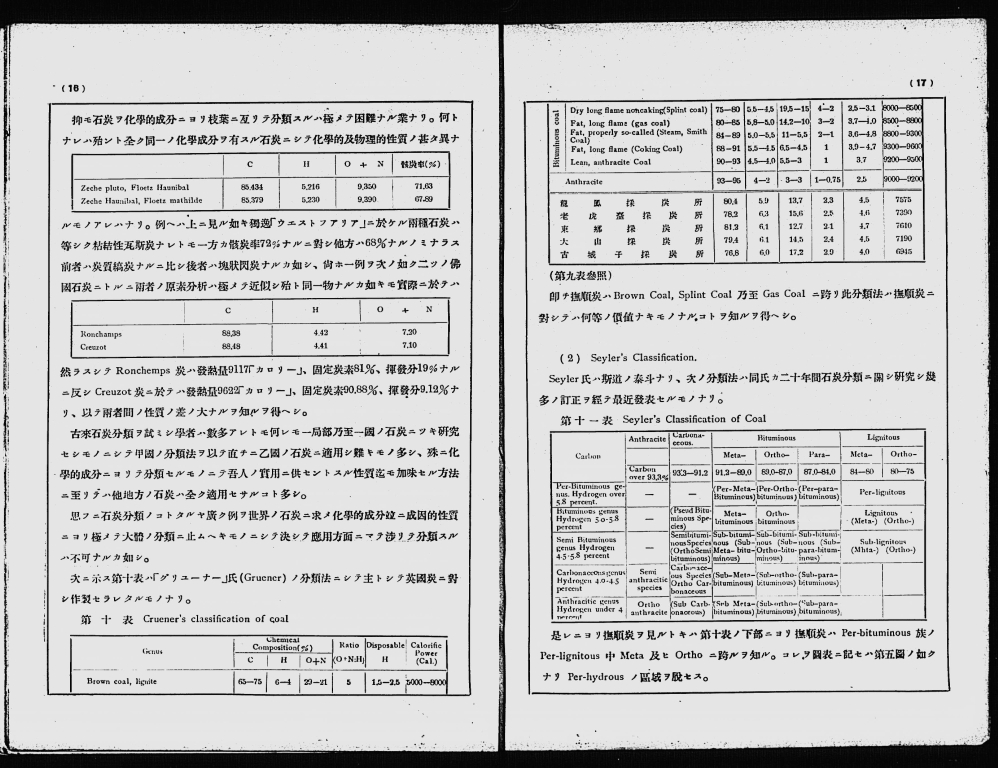 (16)
抑モ石炭ヲ化學的成分ニヨリ枝葉ニ亙リテ分類スルハ極メテ困難ナル業ナリ。何ト
ナレハ殆ント全ク同一ノ化學成分ヲ有スル石炭ニシテ化學的及物理的性質ノ甚タ異ナ
C H O + N 骸炭率(%)
Zeche pluto, Floetz Haunibal 85,434 5,216 9,350 71,63
Zeche Haunibal, Floetz mathilde 85,379 5,230 9,390 67,89
ルモノアレハナリ。例ヘハ上ニ見ル如キ獨逸「ウエストフアリア」ニ於ケル兩種石炭ハ
等シク粘結性瓦斯炭ナレトモ一方カ骸炭率72%ナルニ對シ他方ハ68%ナルノミナラス
前者ハ炭質縞炭ナルニ比シ後者ハ塊狀閃炭ナルカ如シ、尙ホ一例ヲ次ノ如ク二ツノ佛
國石炭ニトルニ兩者ノ原素分析ハ極メテ近似シ殆ト同一物ナルカ如キモ實際ニ於テハ
C H O + N
Ronchamps 88,38 4.42 7,20
Creuzot 88,48 4.41 7,10
然ラスシテ Ronchemps 炭ハ發熱量9117「カロリー」、固定炭素81%、揮發分19%ナル
ニ反シ Creuzot 炭ニ於テハ發熱量9622「カロリー」、固定炭素90,88%、揮發分9.12%ナ
リ、以テ兩者間ノ性質ノ差ノ大ナルヲ知ルヲ得ヘシ。
古來石炭分類ヲ試ミシ學者ハ數多アレトモ何レモ一局部乃至一國ノ石炭ニツキ研究
セシモノニシテ甲國ノ分類法ヲ以テ直チニ乙國ノ石炭ニ適用シ難キモノ多シ、殊ニ化
學的成分ニヨリテ分類セルモノニテ吾人ノ實用ニ供セントスル性質迄モ加味セル方法
ニ至リテハ他地方ノ石炭ハ全ク適用セサルコト多シ。
思フニ石炭分類ノコトタルヤ廣ク例ヲ世界ノ石炭ニ求メ化學的成分竝ニ成因的性質
ニヨリ極メテ大體ノ分類ニ止ムヘキモノニシテ決シテ應用方面ニマテ涉リテ分類スル
ハ不可ナルカ如シ。
次ニ示ス第十表ハ「グリユーナー」氏(Gruener) ノ分類法ニシテ主トシテ英國炭ニ對
シ作製セラレタルモノナリ。
第 十 表 Cruener's classification of coal
Genus Chemical Composition(%) Ratio Disposable Calorific Power
C H O+N (O+N:H) H (Cal.)
Brown coal, lignite 65—75 6—4 29—21 5 1,5—2,5 5000—8000
(17)
Bituminous coal
Dry long flame noncaking(Splint coal) 75—80 5.5—4.5 19,5—15 4—2 2.5—3.1 8000—8500
Fat, long flame (gas coal) 80—85 5,8—5.0 14.2—10 3—2 3,7—4.0 8500—8800
Fat, properly so-called (Steam, Smith Coal) 84—89 5.0—5,5 11—5,5 2—1 3,6—4,8 8800—9300
Fat, long flame (Coking Coal) 88—91 5,5—4.5 6,5—4,5 1 3,9—4,7 9300—9600
Lean, anthracite Coal 90—93 4,5—4.0 5,5—3 1 3,7 9200—9500
Anthracite 93—95 4—2 3—3 1—0,75 2,5 9000—9200
龍 鳳 採 炭 所 80,4 5.9 13,7 2.3 4,5 7575
老 虎 臺 採 炭 所 78.2 6,3 15,6 2.5 4,6 7390
東 鄕 採 炭 所 81.2 6.1 12.7 2.1 4.7 7610
大 山 採 炭 所 79,4 6.1 14.5 2,4 4,5 7190
古 城 子 採 炭 所 76,8 6,0 17.2 2.9 4.0 6945
(第九表參照)
卽チ撫順炭ハ Brown Coal, Splint Coal 乃至 Gas Coal ニ跨リ此分類法ハ撫順炭ニ
對シテハ何等ノ價値ナキモノナルコトヲ知ルヲ得ヘシ。
(2) Seyler's Classification.
Seyler 氏ハ斯道ノ泰斗ナリ、次ノ分類法ハ同氏カ二十年間石炭分類ニ關シ硏究シ幾
多ノ訂正ヲ經テ最近發表セルモノナリ。
第 十 一 表 Seyler's Classification of Coal
Anthracite Carbona-ceous. Bituminous Lignitous
Carbon Meta— Ortho— Para— Meta— Ortho—
Carbon over 93,3% 93,3—91.2 91,2—89,0 89,0—87,0 87,0—84,0 84—80 80—75
Per-Bituminous genus. Hydrogen over 5.8 percent. — — (Per-Meta-Bituminous) (Per-Ortho-bituminous) (Per-para-bituminous) Per-lignitous
Bituminous genus Hydrogen 5.0-5.8 percent — (Pseud Bituminous Species) Meta-bituminous Ortho-bituminous Lignitous (Meta-) (Ortho-)
Semi Bituminous genus Hydrogen 4.5-5.8 percent — Semibituminous Species (OrthoSemi Bituminous) Sub-bituminous (Sub-Meta-bituminous) Sub-bituminous (Sub-Ortho-bituminous) Sub-bituminous (Sub-para-bituminous) Sub-lignitous (Mhta-) (Ortho-)
Carbonaceous genus Hydrogen 4.0-4.5 percent Semi anthracitic species Carbonaceous Species Ortho Carbonaceous (Sub-Meta-bituminous) (Sub-ortho-bituminous) (Sub-para-bituminous)
Anthracitic genus Hydrogen under 4 percent Ortho anthracite (Sub Carbonaceous) (Sub Meta-bituminous) (Sub-ortho-bituminous) (Sub-para-bituminous)
是レニヨリ撫順炭ヲ見ルトキハ第十表ノ下部ニヨリ撫順炭ハ Per-bituminous 族ノ
Per-lignitous 中 Meta 及ヒ Ortho ニ跨ルヲ知ル。コレヲ圖表ニ記セハ第五圖ノ如ク
ナリ Per-hydrous ノ區域ヲ脫セス。